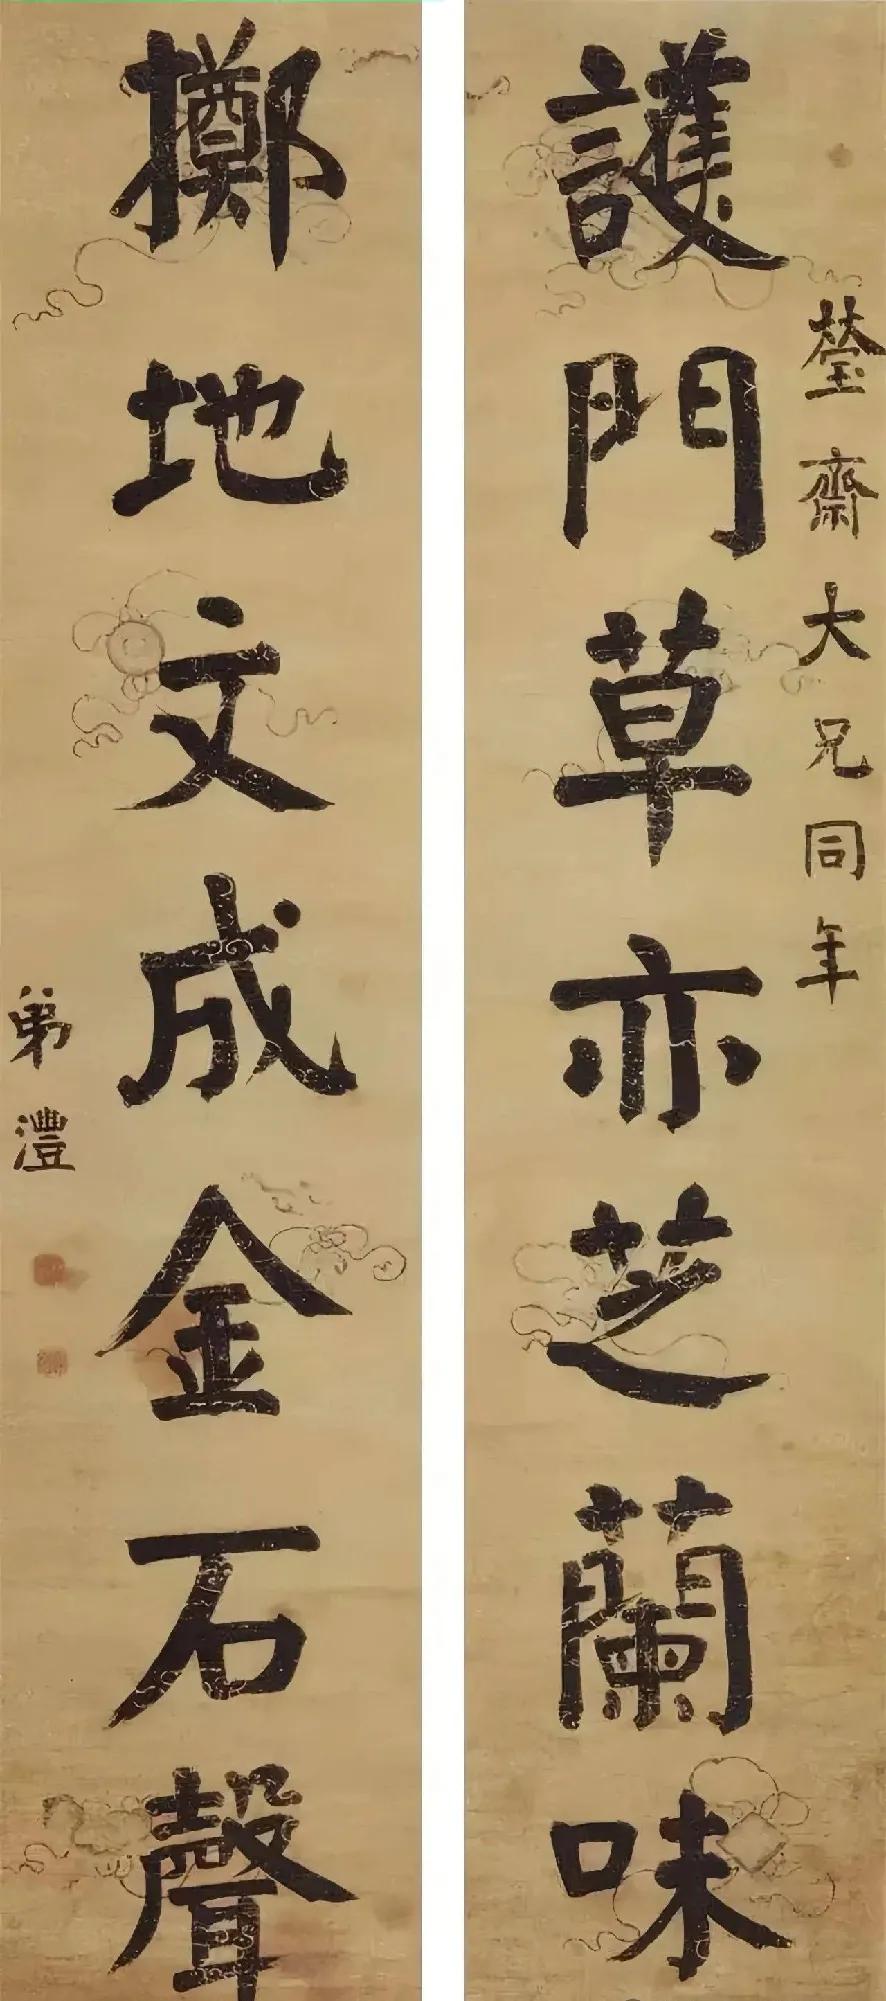 瑩齋大兄同年
護門草亦芝蘭味
擲地文成金石聲
弟澧